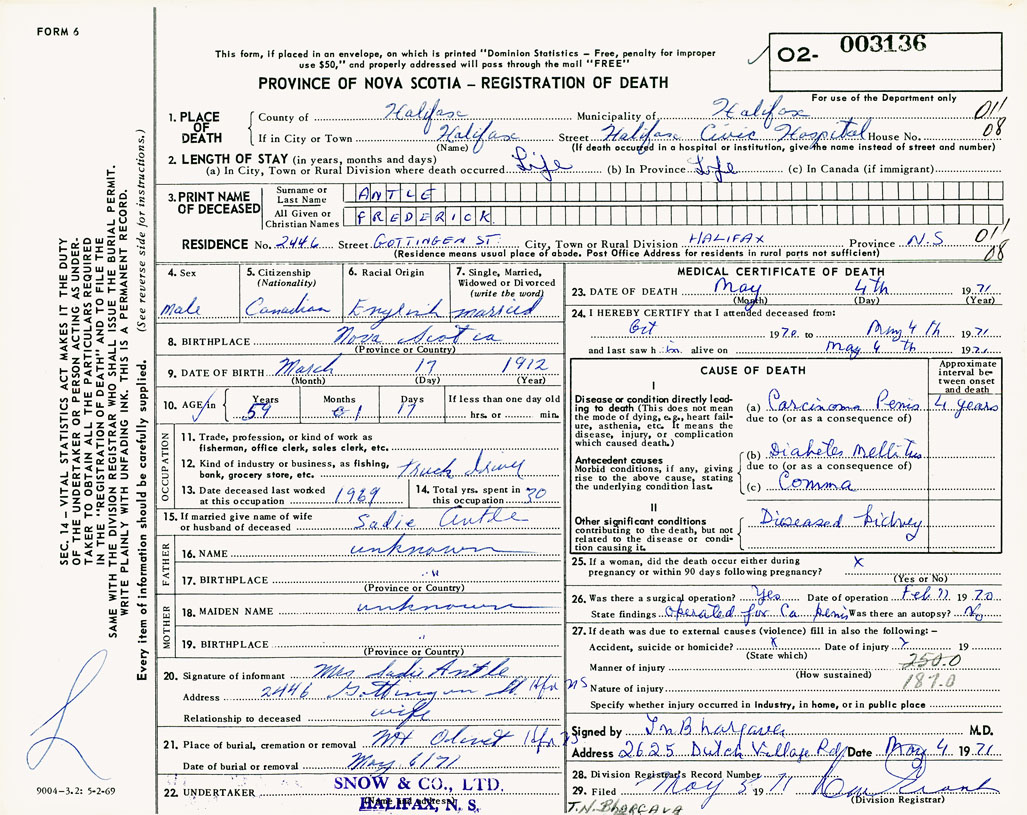 FORM 6
This form, if placed in an envelope, on which is printed "Dominion Statistics – Free, penalty for improper
use $50," and properly addressed will pass through the mail "FREE"
PROVINCE OF NOVA SCOTIA – REGISTRATION OF DEATH
02- 003136
For use of the Department only
1. PLACE OF DEATH
County of Halifax Municipality of Halifax 011
If in City or Town Halifax Street Halifax Civic Hospital House No. 08
(Name) (If death occurred in a hospital or institution, give the name instead of street and number)
2. LENGTH OF STAY (in years, months and days)
(a) In City, Town or Rural Division where death occurred Life (b) In Province Life (c) In Canada (if immigrant)
3. PRINT NAME OF DECEASED
Surname or Last Name ANTLE
All Given or Christian Names FREDERICK
RESIDENCE No. 2446 Street GOTTINGEN ST. City, Town or Rural Division HALIFAX Province N.S 011
(Residence means usual place of abode. Post Office Address for residents in rural parts not sufficient) 08
4. Sex
Male
5. Citizenship
(Nationality)
Canadian
6. Racial Origin
English
7. Single, Married,
Widowed or Divorced
(write the word)
married
8. BIRTHPLACE Nova Scotia
(Province or Country)
9. DATE OF BIRTH March 17 1912
(Month) (Day) (Year)
10. AGE in Years Months Days If less than one day old
59 01 17 hrs. or min.
OCCUPATION
11. Trade, profession, or kind of work as
fisherman, office clerk, sales clerk, etc.
12. Kind of industry or business, as fishing,
bank, grocery store, etc. truck
13. Date deceased last worked
at this occupation 1969
14. Total yrs. spent in
this occupation 30
15. If married give name of wife
or husband of deceased Sadie Antle
FATHER
16. NAME unknown
17. BIRTHPLACE "
(Province or Country)
MOTHER
18. MAIDEN NAME unknown
19. BIRTHPLACE "
(Province or Country)
20. Signature of informant Mrs Sadie Antle
Address 2446 Gottingen St Hfx NS
Relationship to deceased wife
21. Place of burial, cremation or removal Mt Olivet Hfx NS
Date of burial or removal May 6/71
22. UNDERTAKER SNOW & CO., LTD.
(Name and address)
HALIFAX, N. S.
MEDICAL CERTIFICATE OF DEATH
23. DATE OF DEATH May 4th 1971
(Month) (Day) (Year)
24. I HEREBY CERTIFY that I attended deceased from:
Oct 1970 to May 4th 1971
and last saw him alive on May 4th 1971
CAUSE OF DEATH
Approximate
interval be-
tween onset
and death
I
Disease or condition directly lead-
ing to death (This does not mean
the mode of dying, e.g., heart fail-
ure, asthenia, etc. It means the
disease, injury, or complication
which caused death.)
(a) Carcinoma Penis 4 years
due to (or as a consequence of)
Antecedent causes
Morbid conditions, if any, giving
rise to the above cause, stating
the underlying condition last.
(b) Diabetes Mellitus
due to (or as a consequence of)
(c) Comma
II
Other significant conditions
contributing to the death, but not
related to the disease or condi-
tion causing it.
Diseased kidney
25. If a woman, did the death occur either during
pregnancy or within 90 days following pregnancy? x
(Yes or No)
26. Was there a surgical operation? Yes Date of operation Feb 1970
State findings operated for Ca penis Was there an autopsy? No
27. If death was due to external causes (violence) fill in also the following: –
Accident, suicide or homicide? x Date of injury 19
(State which) 250.0
Manner of injury
(How sustained) 187.0
Nature of injury
Specify whether injury occurred in industry, in home, or in public place
Signed by T N Bhargava M.D.
Address 2625 Dutch Village Rd Date May 4 1971
28. Division Registrar's Record Number
29. Filed May 5 1971
(Division Registrar)
T.N. BHARGAVA
SEC. 14 – VITAL STATISTICS ACT MAKES IT THE DUTY
OF THE UNDERTAKER OR PERSON ACTING AS UNDER-
TAKER TO OBTAIN ALL THE PARTICULARS REQUIRED
IN THE "REGISTRATION OF DEATH" AND TO FILE THE
SAME WITH THE DIVISION REGISTRAR WHO SHALL ISSUE THE BURIAL PERMIT.
WRITE PLAINLY WITH UNFADING INK. THIS IS A PERMANENT RECORD.
Every item of information should be carefully supplied. (See reverse side for instructions.)
9004–3.2: 5-2-69